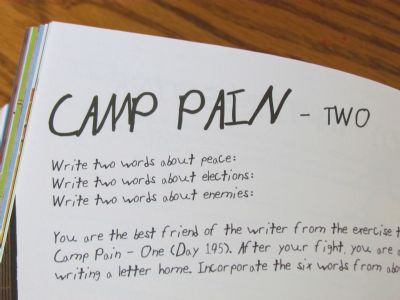 CAMP PAIN - TWO
Write two words about peace:
Write two words about elections:
Write two words about enemies:
You are the best friend of the writer from the exercise
Camp Pain - One (Day 145). After your fight, you are
writing a letter home. Incorporate the six words from